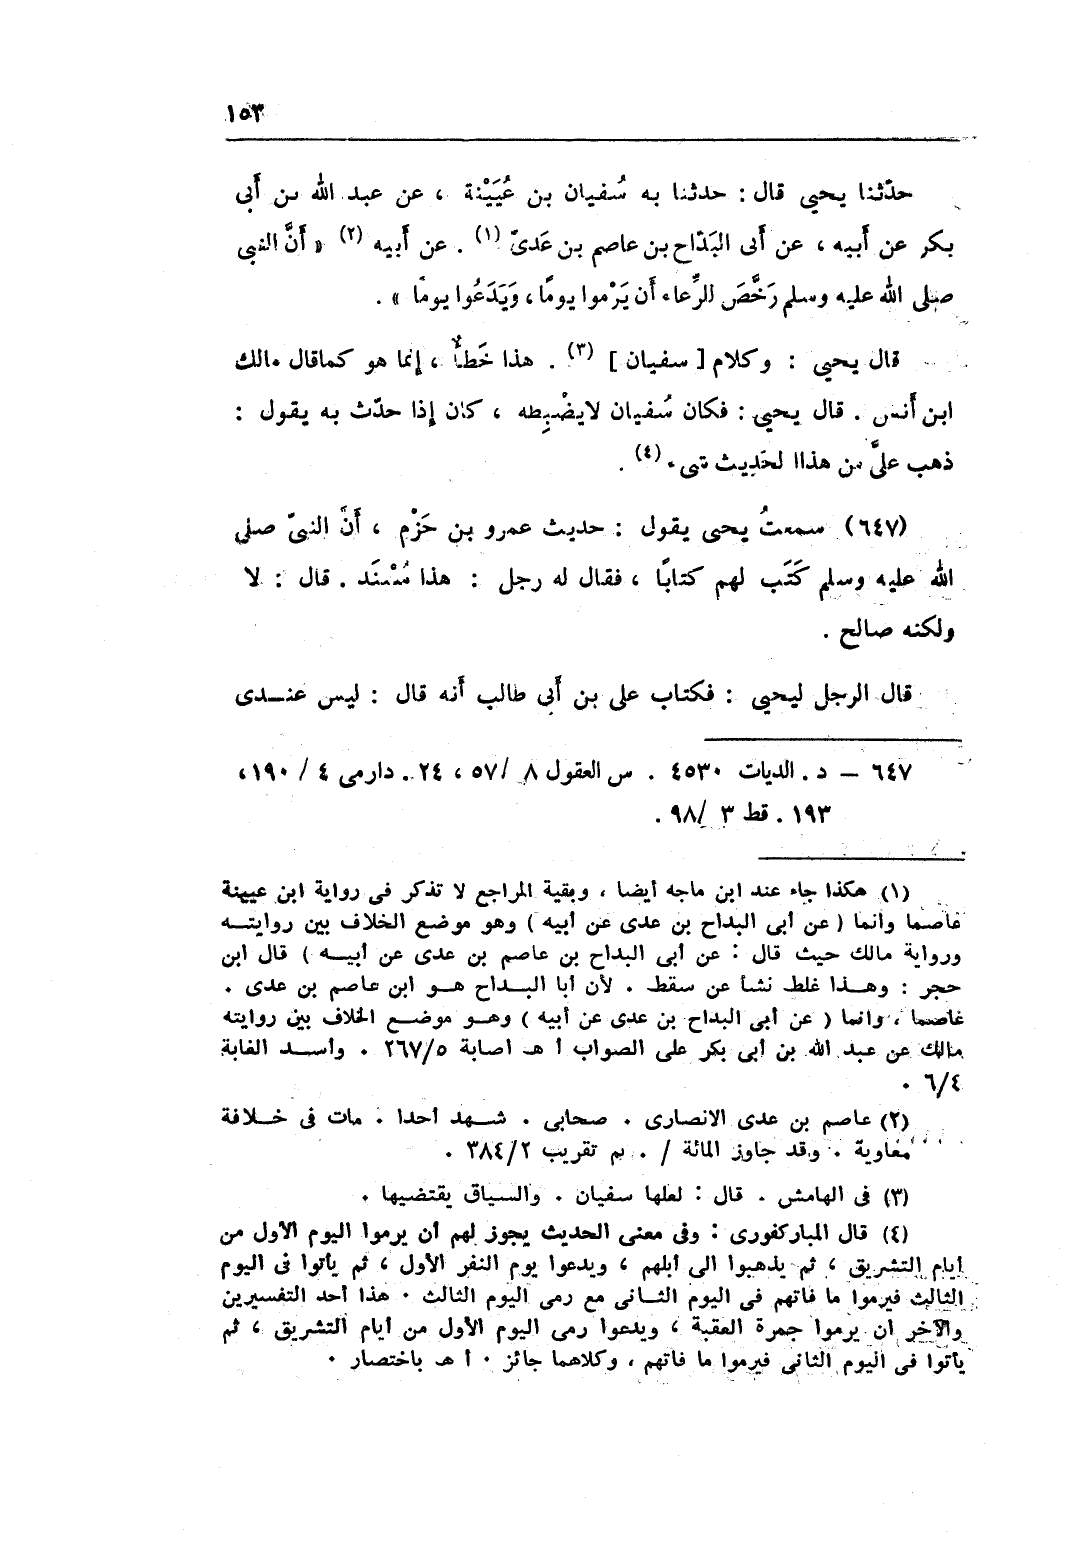 ١٥٣
حدّثنا يحيى قال : حدثنا به سُفيان بن عُيَيْنة ، عن عبد الله بن أَبى
بكر عن أَبيه ، عن أَبى البَدّاح بن عاصم بن عَدىّ (١) . عن أَبيه (٢) « أَنَّ النبى
صلى الله عليه وسلم رَخَّصَ للرِّعاء أَن يَرْموا يومًا ، وَيَدَعُوا يومًا » .
قال يحيى : وكلام [ سفيان ] (٣) . هذا خَطأٌ ، إنما هو كماقال مالك
ابن أَنس . قال يحيى : فكان سُفيان لايضْبِطه ، كان إذا حدّث به يقول :
ذهب علىَّ من هذاا لحَدِيث شىء (٤) .
(٦٤٧) سمعتُ يحيى يقول : حديث عمرو بن حَزْم ، أَنَّ النبىّ صلى
الله عليه وسلم كَتَب لهم كتابًا ، فقال له رجل : هذا مُسْنَد . قال : لا
ولكنه صالح .
قال الرجل ليحيى : فكتاب على بن أَبى طالب أَنه قال : ليس عنــدى
٦٤٧ – د . الديات ٤٥٣٠ . س العقول ٨ /٥٧ ، ٢٤ . دارمى ٤ / ١٩٠ ،
١٩٣ . قط ٣ /٩٨ .
(١) هكذا جاء عند ابن ماجه أيضا ، وبقية المراجع لا تذكر فى رواية ابن عيينة
عاصما وانما ( عن أبى البداح بن عدى عن أبيه ) وهو موضع الخلاف بين روايتــه
ورواية مالك حيث قال : عن أبى البداح بن عاصم بن عدى عن أبيــه ) قال ابن
حجر : وهــذا غلط نشأ عن سقط . لأن أبا البــداح هــو ابن عاصم بن عدى .
عاصما ، وانما ( عن أبى البداح بن عدى عن أبيه ) وهــو موضــع الخلاف بين روايته
مالك عن عبد الله بن أبى بكر على الصواب أ هـ اصابة ٢٦٧/٥ . وأســد الغابة
٦/٤ .
(٢) عاصم بن عدى الانصارى . صحابى . شــهد أحدا . مات فى خــلافة
معاوية . وقد جاوز المائة / . بم تقريب ٣٨٤/٢ .
(٣) فى الهامش . قال : لعلها سفيان . والسياق يقتضيها .
(٤) قال المباركفورى : وفى معنى الحديث يجوز لهم أن يرموا اليوم الأول من
أيام التشريق ، ثم يذهبوا الى أبلهم ، ويدعوا يوم النفر الأول ، ثم يأتوا فى اليوم
الثالث فيرموا ما فاتهم فى اليوم الثــانى مع رمى اليوم الثالث . هذا أحد التفسيرين
والآخر أن يرموا جمرة العقبة ، ويدعوا رمى اليوم الأول من أيام التشريق ، ثم
يأتوا فى اليوم الثانى فيرموا ما فاتهم ، وكلاهما جائز . أ هـ باختصار .